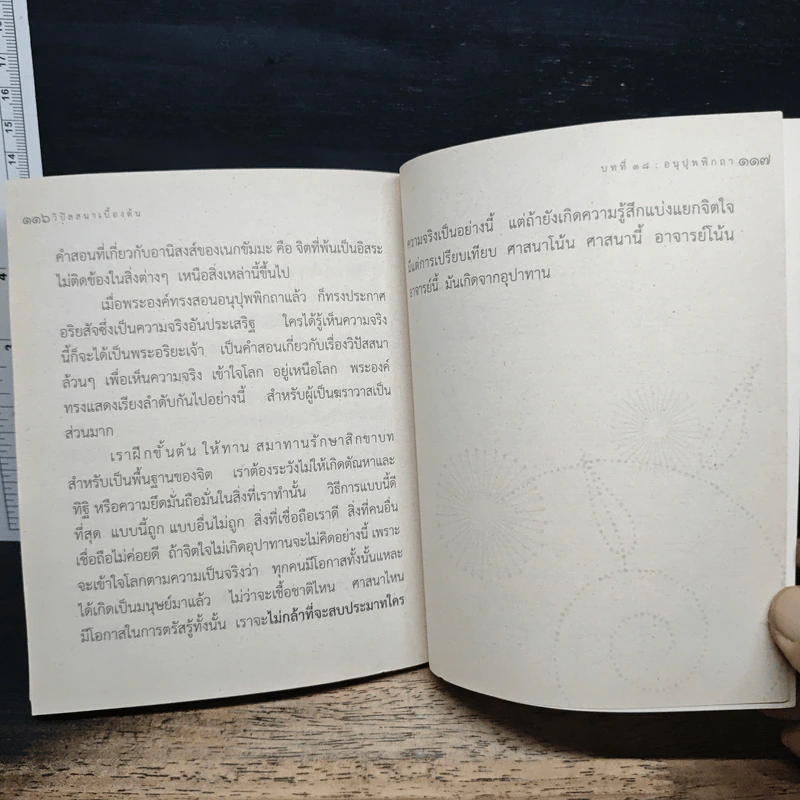 ๑๑๖ วิปัสสนาเบื้องต้น
คำสอนที่เกี่ยวกับอานิสงส์ของเนกขัมมะ คือ จิตที่พ้นเป็นอิสระ
ไม่ติดข้องในสิ่งต่างๆ เหนือสิ่งเหล่านี้ขึ้นไป
เมื่อพระองค์ทรงสอนอนุปุพพิกถาแล้ว ก็ทรงประกาศ
อริยสัจซึ่งเป็นความจริงอันประเสริฐ ใครได้รู้เห็นความจริง
นี้ก็จะได้เป็นพระอริยะเจ้า เป็นคำสอนเกี่ยวกับเรื่องวิปัสสนา
ล้วนๆ เพื่อเห็นความจริง เข้าใจโลก อยู่เหนือโลก พระองค์
ทรงแสดงเรียงลำดับกันไปอย่างนี้ สำหรับผู้เป็นฆราวาสเป็น
ส่วนมาก
เราฝึกขั้นต้น ให้ทาน สมาทานรักษาสิกขาบท
สำหรับเป็นพื้นฐานของจิต เราต้องระวังไม่ให้เกิดตัณหาและ
ทิฐิ หรือความยึดมั่นถือมั่นในสิ่งที่เราทำนั้น วิธีการแบบนี้ดี
ที่สุด แบบนี้ถูก แบบอื่นไม่ถูก สิ่งที่เชื่อถือเราดี สิ่งที่คนอื่น
เชื่อถือไม่ค่อยดี ถ้าจิตใจไม่เกิดอุปาทานจะไม่คิดอย่างนี้ เพราะ
จะเข้าใจโลกตามความเป็นจริงว่า ทุกคนมีโอกาสทั้งนั้นแหละ
ได้เกิดเป็นมนุษย์มาแล้ว ไม่ว่าจะเชื้อชาติไหน ศาสนาไหน
มีโอกาสในการตรัสรู้ทั้งนั้น เราจะไม่กล้าที่จะสบประมาทใคร
บทที่ ๑๘ : อนุปุพพิกถา ๑๑๗
ความจริงเป็นอย่างนี้ แต่ถ้ายังเกิดความรู้สึกแบ่งแยกจิตใจ
มีแต่การเปรียบเทียบ ศาสนาโน้น ศาสนานี้ อาจารย์โน้น
อาจารย์นี้ มันเกิดจากอุปาทาน
15
16
17